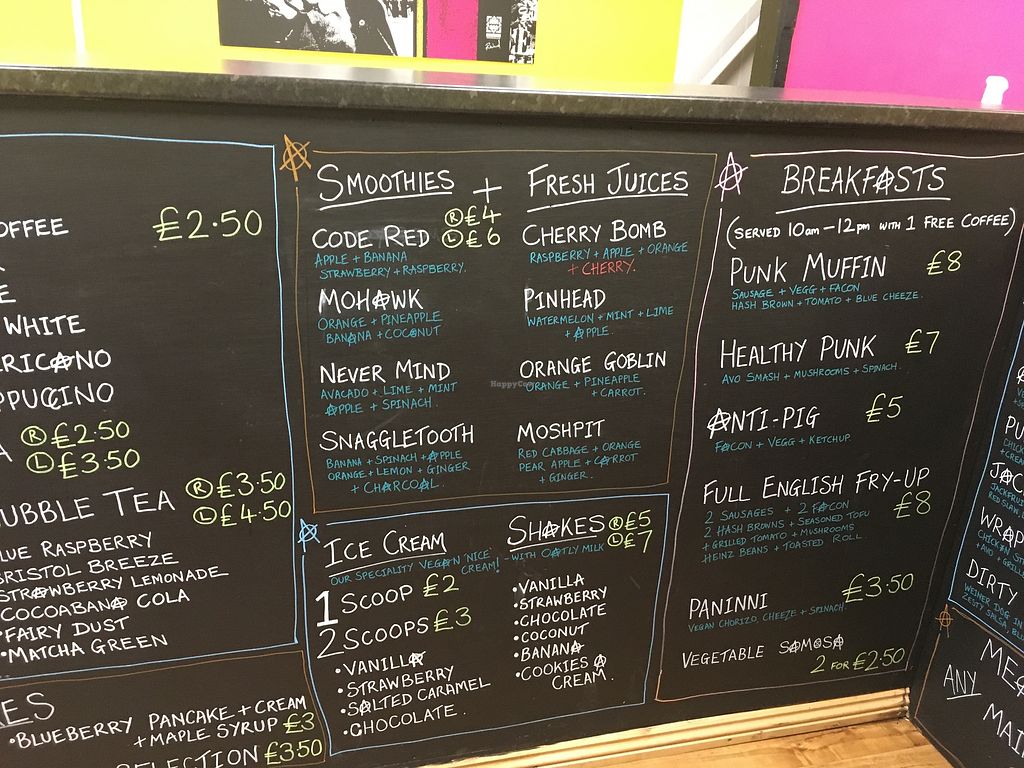 OFFEE £2.50
WHITE
RICANO
PPUCCINO
Ⓡ£2.50
Ⓛ£3.50
UBBLE TEA Ⓡ£3.50
Ⓛ£4.50
LUE RASPBERRY
BRISTOL BREEZE
STRAWBERRY LEMONADE
COCOABANA COLA
•FAIRY DUST
•MATCHA GREEN
•BLUEBERRY PANCAKE + CREAM
+ MAPLE SYRUP £3
SELECTION £3.50
SMOOTHIES + FRESH JUICES
Ⓡ£4
Ⓛ£6
CODE RED
APPLE + BANANA
STRAWBERRY + RASPBERRY.
MOHAWK
ORANGE + PINEAPPLE
BANANA + COCONUT
NEVER MIND
AVACADO + LIME + MINT
APPLE + SPINACH.
SNAGGLETOOTH
BANANA + SPINACH + APPLE
ORANGE + LEMON + GINGER
+ CHARCOAL.
CHERRY BOMB
RASPBERRY + APPLE + ORANGE
+ CHERRY.
PINHEAD
WATERMELON + MINT + LIME
+ APPLE.
HappyCow
ORANGE GOBLIN
ORANGE + PINEAPPLE
+ CARROT.
MOSHPIT
RED CABBAGE + ORANGE
PEAR APPLE + CARROT
+ GINGER.
ICE CREAM
OUR SPECIALITY VEGAN 'NICE' CREAM!
1 SCOOP £2
2 SCOOPS £3
•VANILLA
•STRAWBERRY
•SALTED CARAMEL
•CHOCOLATE.
SHAKES Ⓡ£5
Ⓛ£7
- WITH OATLY MILK
•VANILLA
•STRAWBERRY
•CHOCOLATE
•COCONUT
•BANANA
•COOKIES & CREAM.
BREAKFASTS
(SERVED 10am - 12pm WITH 1 FREE COFFEE)
PUNK MUFFIN £8
SAUSAGE + VEGG + FACON
HASH BROWN + TOMATO + BLUE CHEEZE.
HEALTHY PUNK £7
AVO SMASH + MUSHROOMS + SPINACH.
ANTI-PIG £5
FACON + VEGG + KETCHUP.
FULL ENGLISH FRY-UP £8
2 SAUSAGES + 2 FACON
2 HASH BROWNS + SEASONED TOFU
+ GRILLED TOMATO + MUSHROOMS
HEINZ BEANS + TOASTED ROLL
PANINNI £3.50
VEGAN CHORIZO, CHEEZE + SPINACH.
VEGETABLE SAMOSA
2 FOR £2.50
PU
JAC
JACKFRUI
WRAP
DIRTY
ME
ANY
MAI